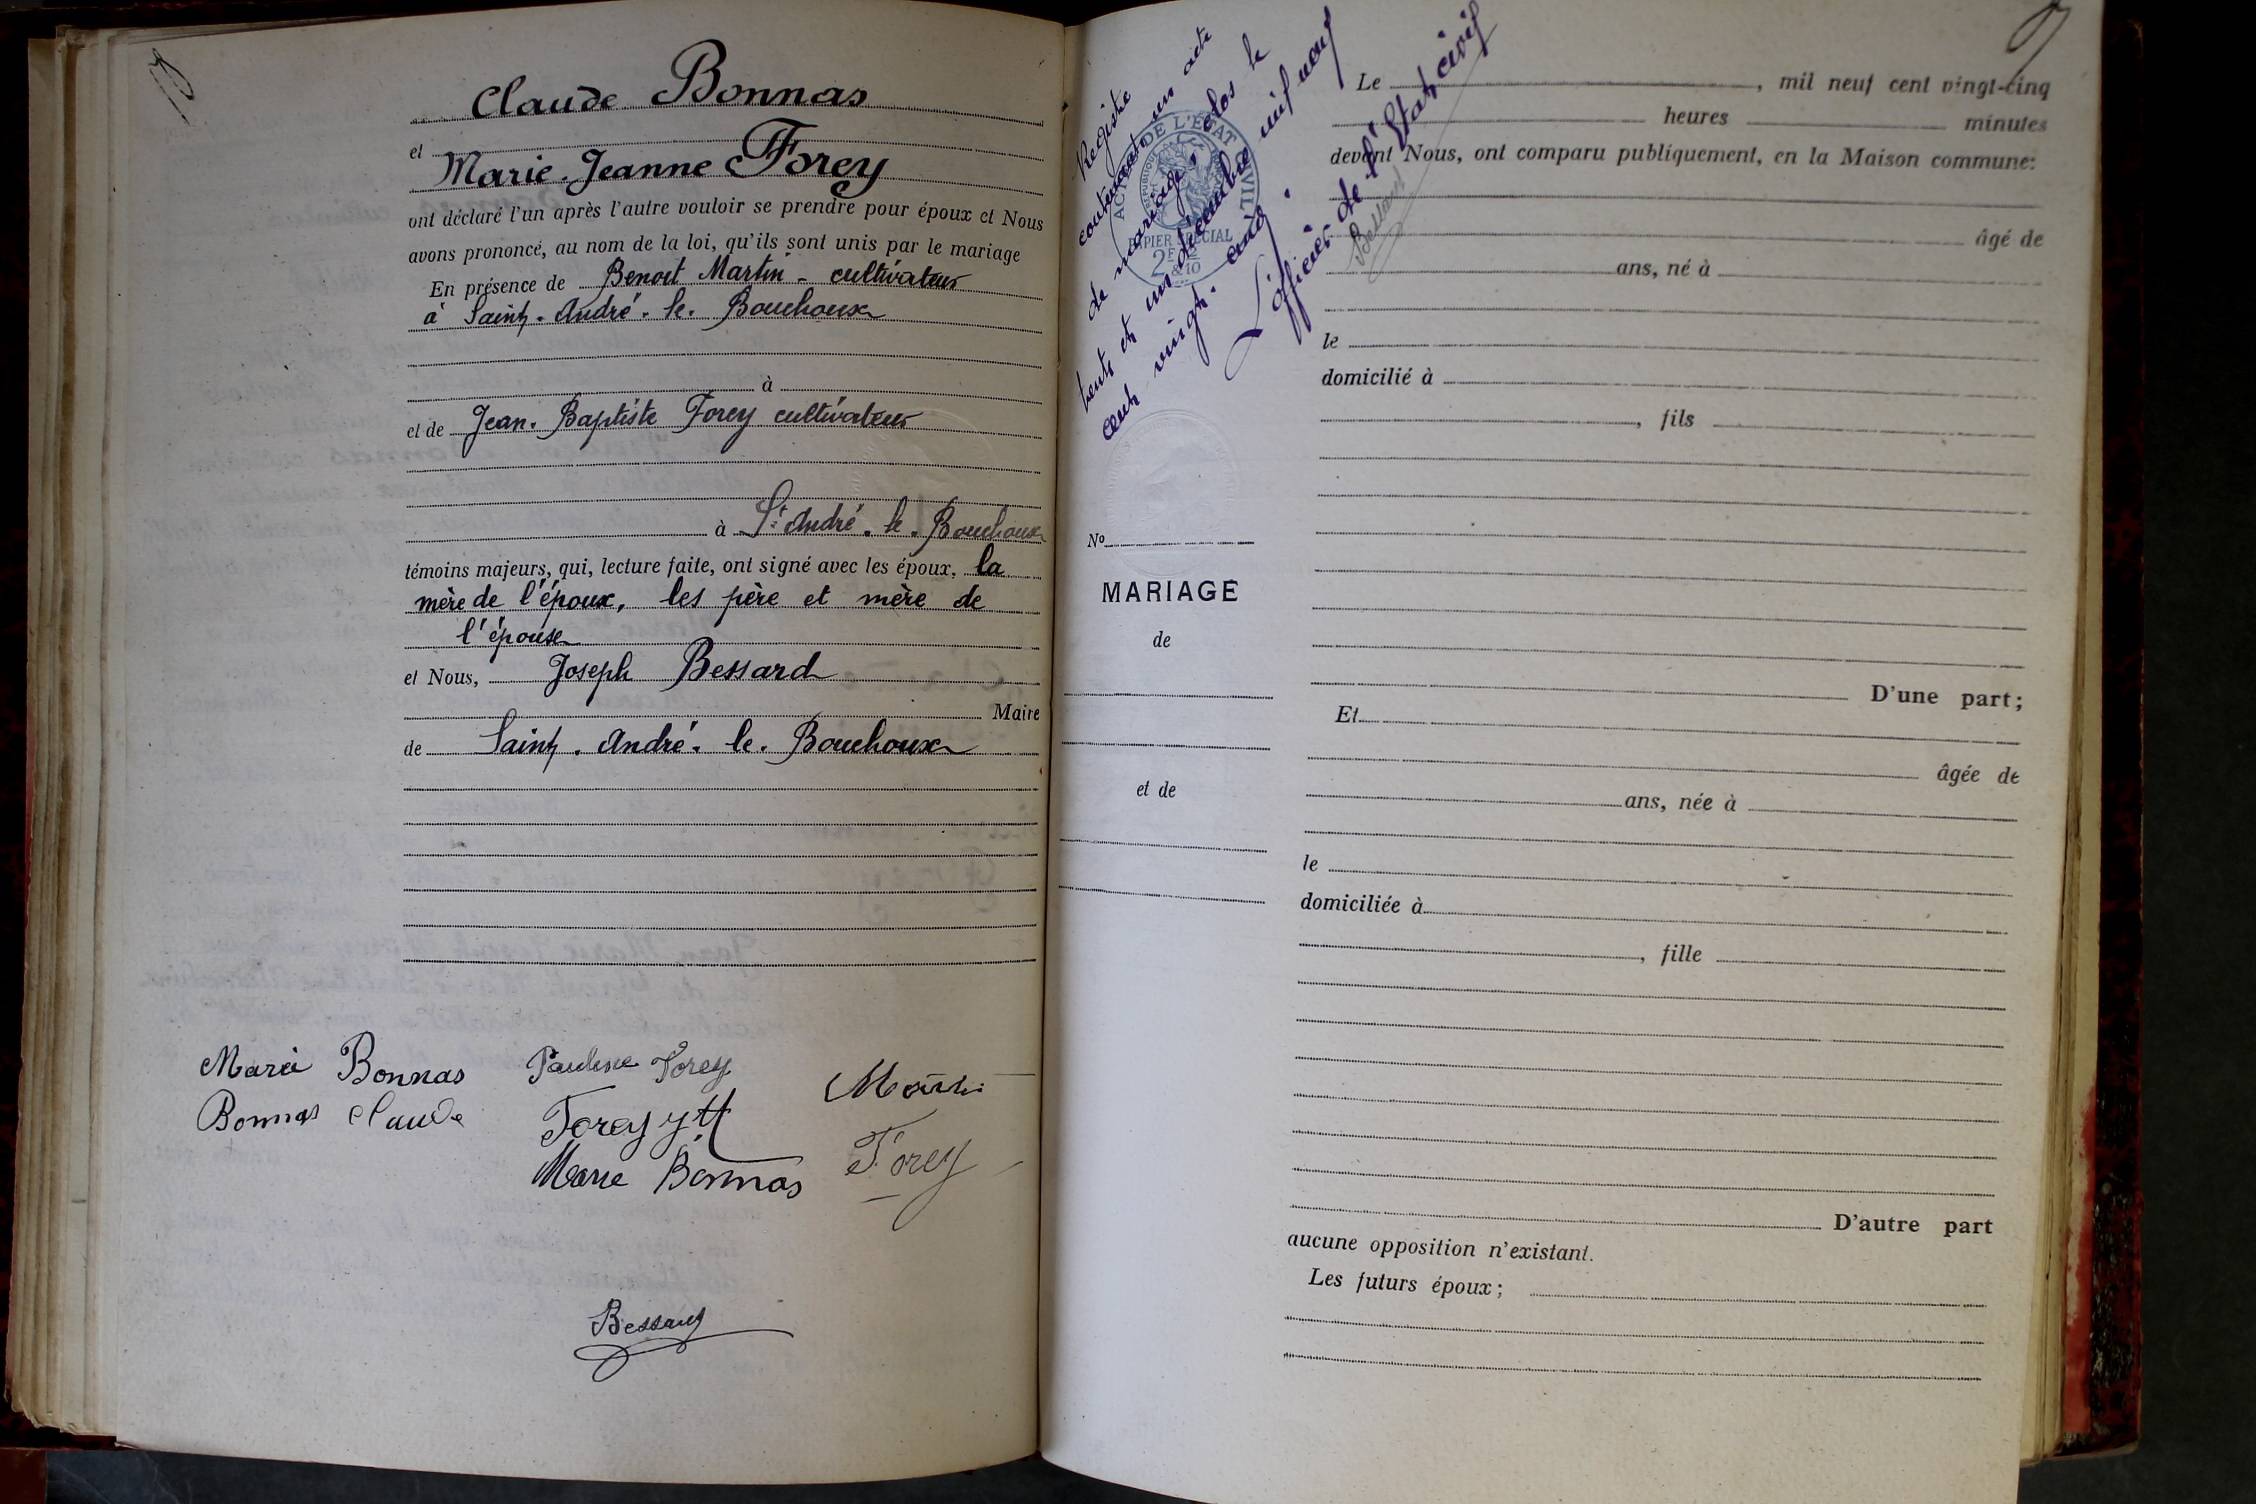 Claude Bonnas
et
Marie-Jeanne Forey
ont déclaré l'un après l'autre vouloir se prendre pour époux et Nous
avons prononcé, au nom de la loi, qu'ils sont unis par le mariage
En présence de Benoit Martin - cultivateur
à Saint-André-le-Bouchoux
à
et de Jean-Baptiste Forey cultivateur
à St André-le-Bouchoux
témoins majeurs, qui, lecture faite, ont signé avec les époux, la
mère de l'époux, les père et mère de
l'épouse
et Nous, Joseph Bessard
Maire
de Saint-André-le-Bouchoux
Maria Bonnas
Pauline Forey
Martin
Bonnas Claude
Forey
Marie Bonnas
Forey
Bessard
Registre
contenant un acte
de mariage, clos le
trente et un décembre mil neuf
cent vingt-cinq.
L'officier de l'État civil
Bessard
ACTES DE L'ÉTAT CIVIL
PAPIER SPÉCIAL
2F
&10
No
MARIAGE
de
et de
Le , mil neuf cent vingt-cinq
heures minutes
devant Nous, ont comparu publiquement, en la Maison commune:
âgé de
ans, né à
le
domicilié à
, fils
D'une part;
Et
âgée de
ans, née à
le
domiciliée à
, fille
D'autre part
aucune opposition n'existant.
Les futurs époux;